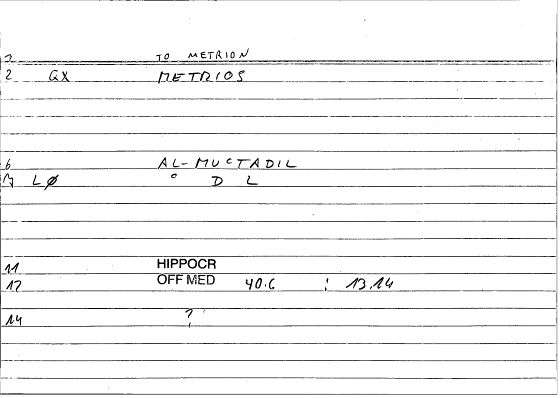 1 TO METRION
2 GX METRIOS
6 AL-MUCTADIL
7 LØ c D L
11 HIPPOCR
12 OFF MED 40.6 : 13.14
14 ?